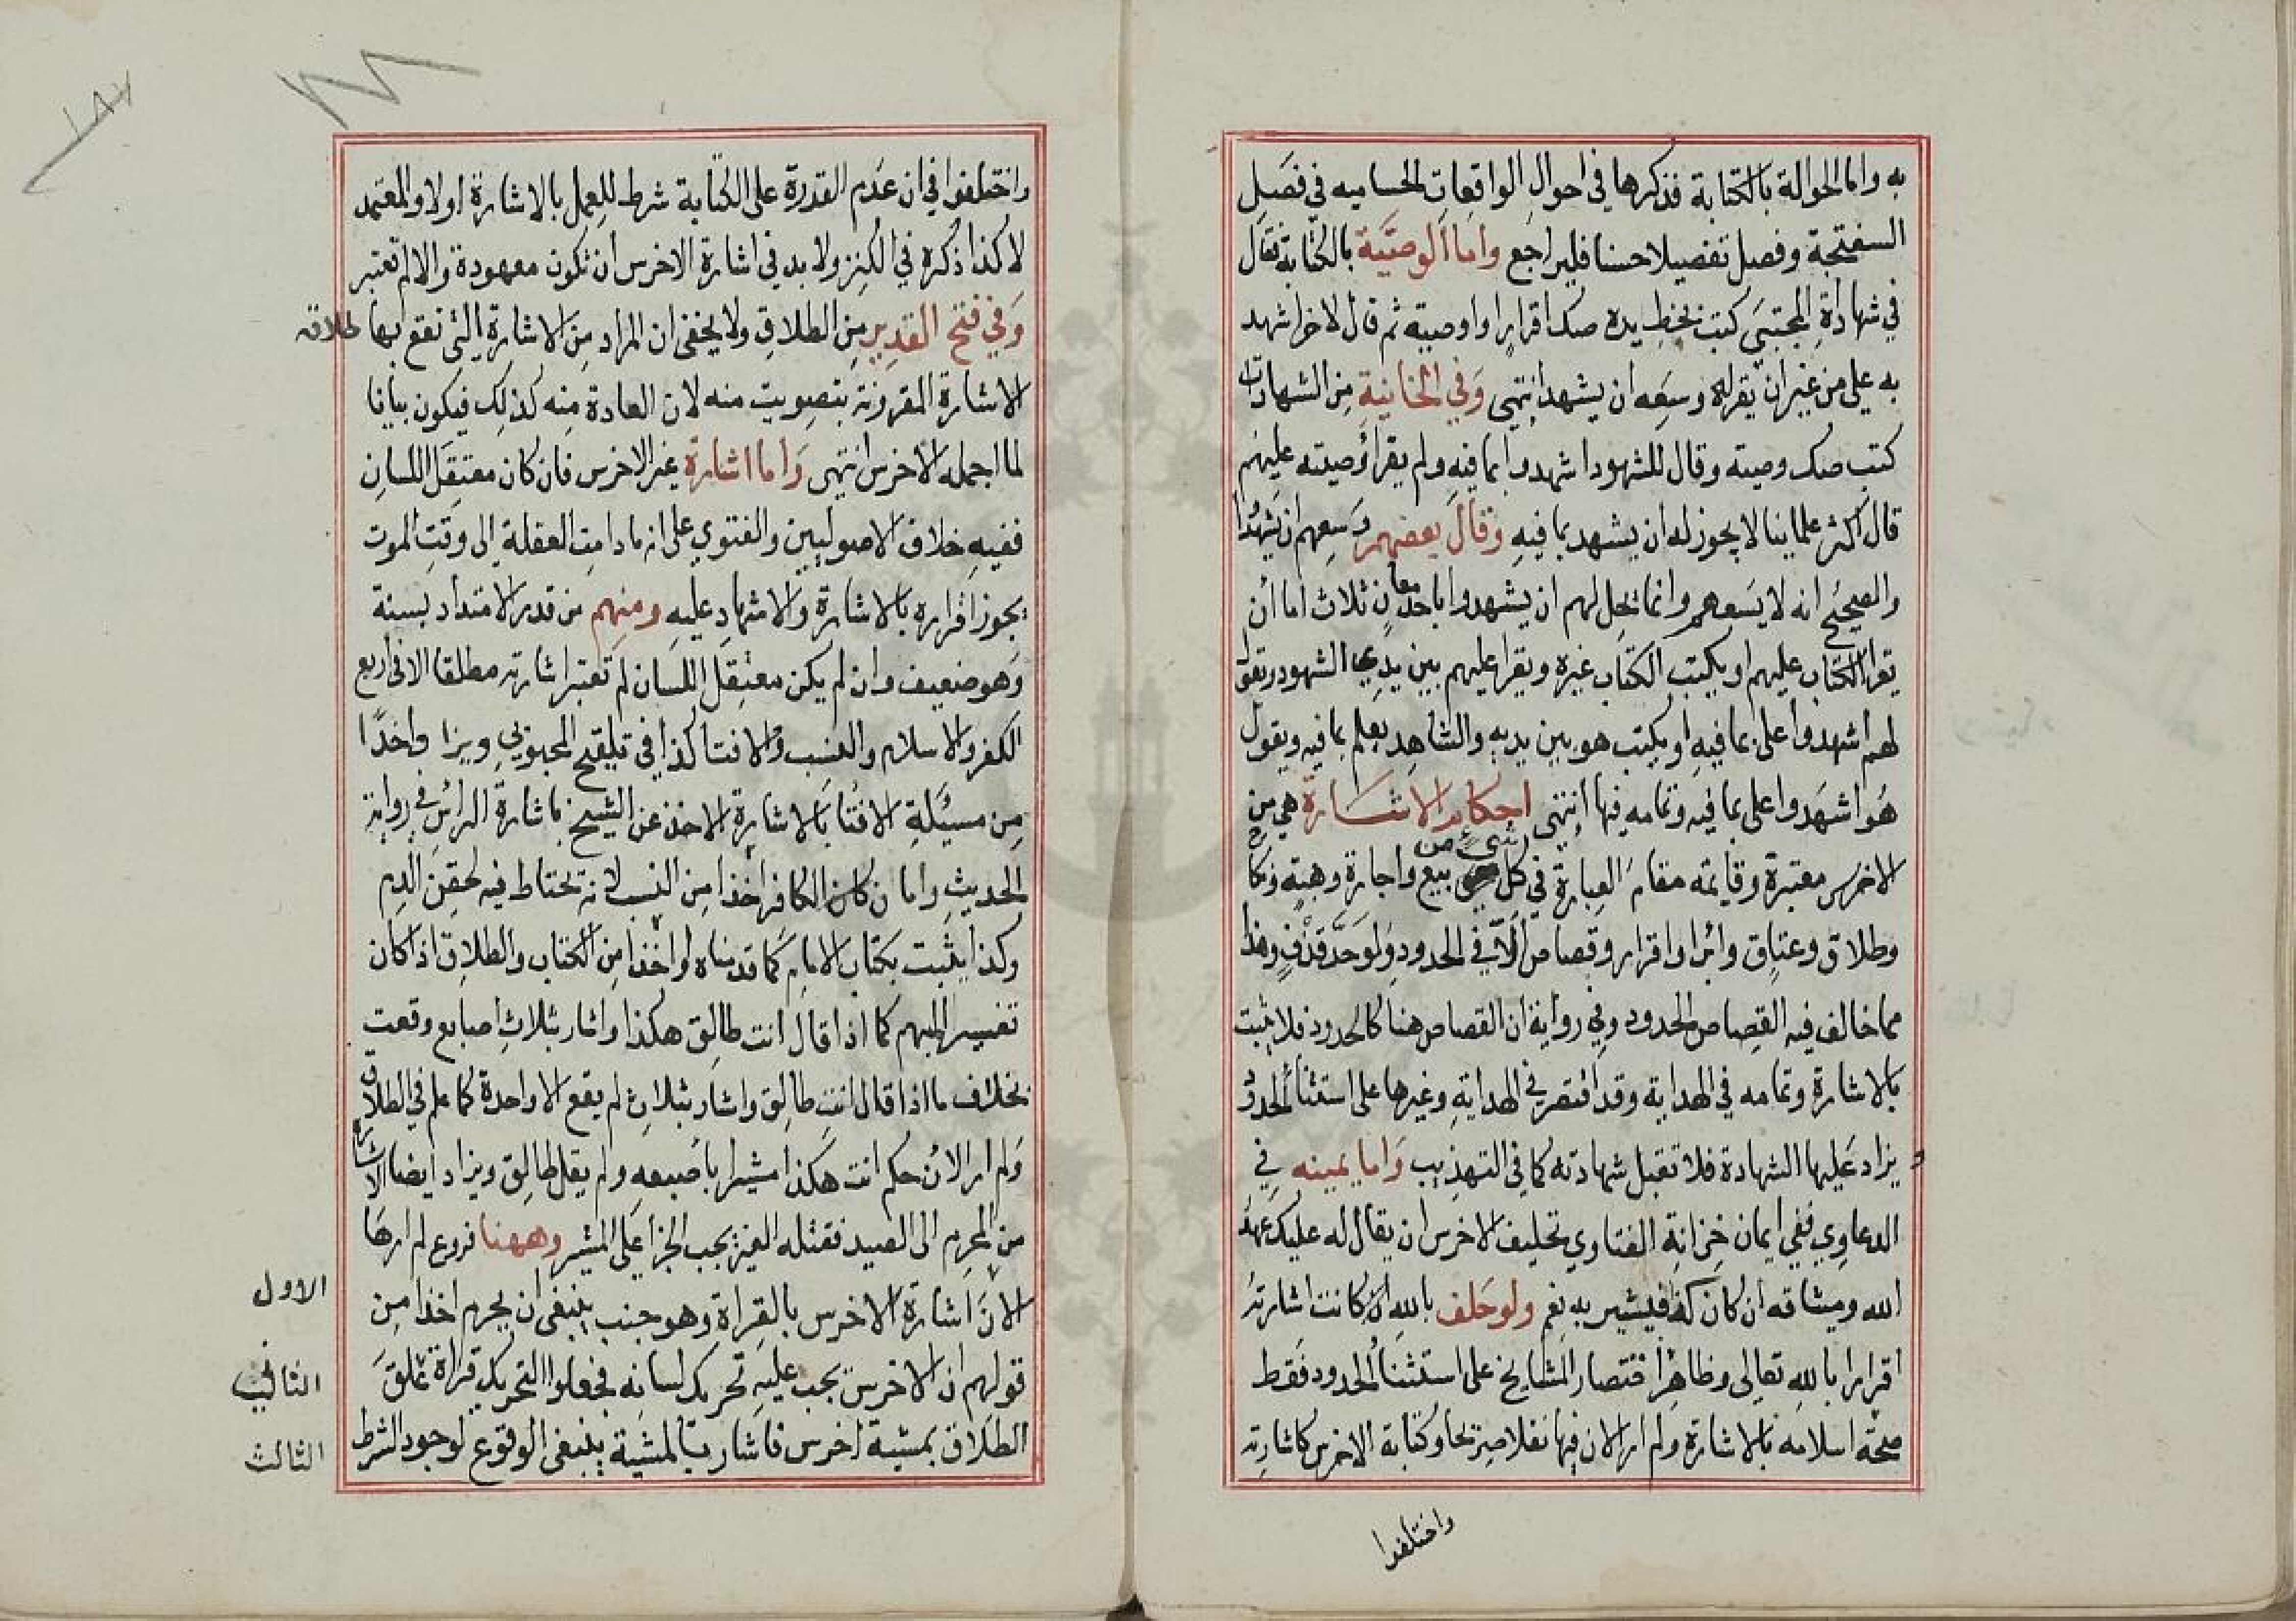 به واما الحوالة بالكتابة فذكرها في احوال الواقعات الحساميه في فصل
السفتجة وفصل تفصيلا حسنا فليراجع واما الوصيّة بالكتابة فقال
في شهادة المجتبى كتب بخط يده صك اقرار او اوصية ثم قال لاخر اشهد
به علي من غير ان يقراه وسعه ان يشهد انتهى وفي الخانية من الشهادات
كتب صك وصيته وقال للشهود اشهدوا بما فيه ولم يقرأ وصيته عليهم
قال اكثر علماينا لا يجوز له ان يشهد بما فيه وقال بعضهم وسعهم ان يشهدوا
والصحيح انه لا يسعهم وانما تحل لهم ان يشهدوا باحد معان ثلاث اما ان
يقرا الكتاب عليهم او يكتب الكتاب غيره ويقرا عليهم بين يدي الشهود ويقول
لهم اشهدوا على بما فيه او يكتب هو بين يديه والشاهد يعلم بما فيه ويقول
هو اشهدوا على بما فيه وتمامه فيها انتهى احكام الاشارة هي من
الاخرس معتبرة وقايمة مقام العبارة في كل شئ من بيع واجارة وهبة ونكاح
وطلاق وعتاق وابرا واقرار وقصاص الا في الحدود ولو حد قذف وهذا
مما خالف فيه القصاص الحدود وفي رواية ان القصاص هنا كالحدود فلا يثبت
بالاشارة وتمامه في الهداية وقد اقتصر في الهداية وغيرها على استثنا الحدود
يزاد عليها الشهادة فلا تقبل شهادته كما في التهذيب واما يمينه في
الدعاوي ففي ايمان خزانة الفتاوي تحليف الاخرس ان يقال له عليك عهد
الله وميثاقه ان كان كذا فيشير به نعم ولو حلف بالله لا كانت اشارته
اقرارا بالله تعالى وظاهر اقتصار المشايخ على استثنا الحدود فقط
صحة اسلامه بالاشارة ولم ار الان فيها نقلا صريحا وكتابة الاخرس كاشارته
واختلفوا
واختلفوا في ان عدم القدرة على الكتابة شرط للعمل بالاشارة اولا والمعتمد
لا كذا ذكره في الكنز ولا بد في اشارة الاخرس ان تكون معهودة والا لم تعتبر
وفي فتح القدير من الطلاق ولا يخفى ان المراد من الاشارة التي تقع بها طلاقه
الاشارة المقرونة بتصويت منه لان العادة منه كذلك فيكون بيانا
لما اجمله الاخرس انتهى واما اشارة غير الاخرس فان كان معتقل اللسان
ففيه خلاف الاصوليين والفتوي على انه مادامت العقلة الى وقت الموت
يجوز اقراره بالاشارة والاشهاد عليه ومنهم من قدر الامتداد بسنة
وهو ضعيف وان لم يكن معتقل اللسان لم تعتبر اشارته مطلقا الا في اربع
الكفر والاسلام والنسب والافتا كذا في تلقيح المحبوبي ويزا واخذا
من مسئلة الافتا بالاشارة الاخذ عن الشيخ باشارة الرأس في رواية
الحديث واما ن كان الكافر اخذا من النسب لانه تحتاط فيه لحقن الدم
وكذا يثبت بكتاب الامام كما قدمناه او اخذا من الكتاب والطلاق اذا كان
تفسير المبهم كما اذا قال انت طالق هكذا واشار بثلاث اصابع وقعت
بخلاف ما اذا قال انت طالق واشار بثلاث لم يقع الا واحدة كما علم في الطلاق
ولم ار الان حكم انت هكذا مشيرا باصبعه ولم يقل طالق ويزاد ايضا الاشارة
من المحرم الى الصيد فقتله الغير يجب الجزا على المشير وههنا فروع لم ارها
الان اشارة الاخرس بالقراة وهو جنب ينبغي ان يحرم اخذا من
الاول
قولهم ان الاخرس يجب عليه تحريك لسانه فجعلوا التحريك قراة علق
الثاني
الطلاق بمشية اخرس فاشار بالمشية ينبغي الوقوع لوجود الشرط
الثالث